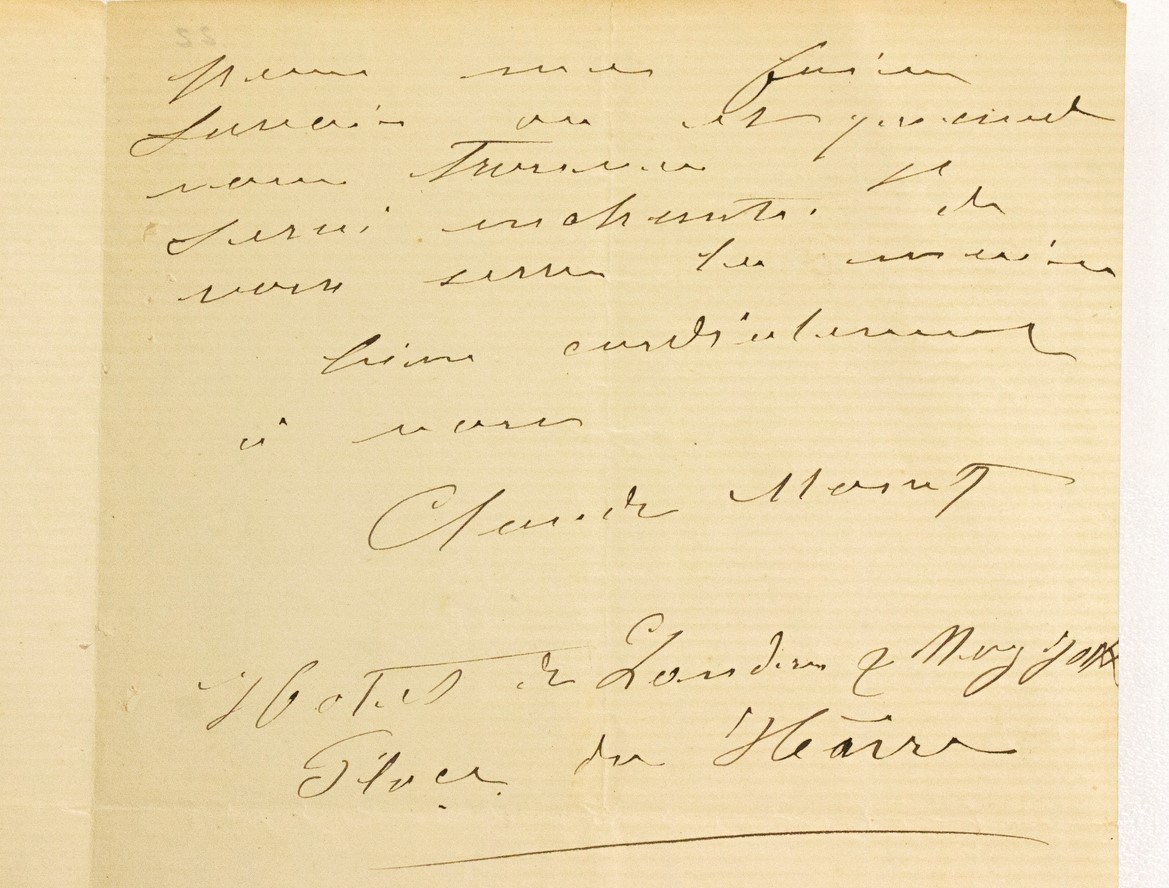 pour me faire
savoir où et quand
vous trouver. Je
serai enchanté de
vous serrer la main
bien cordialement
à vous
Claude Monet
Hotel de Londres & New York
Place du Hâvre